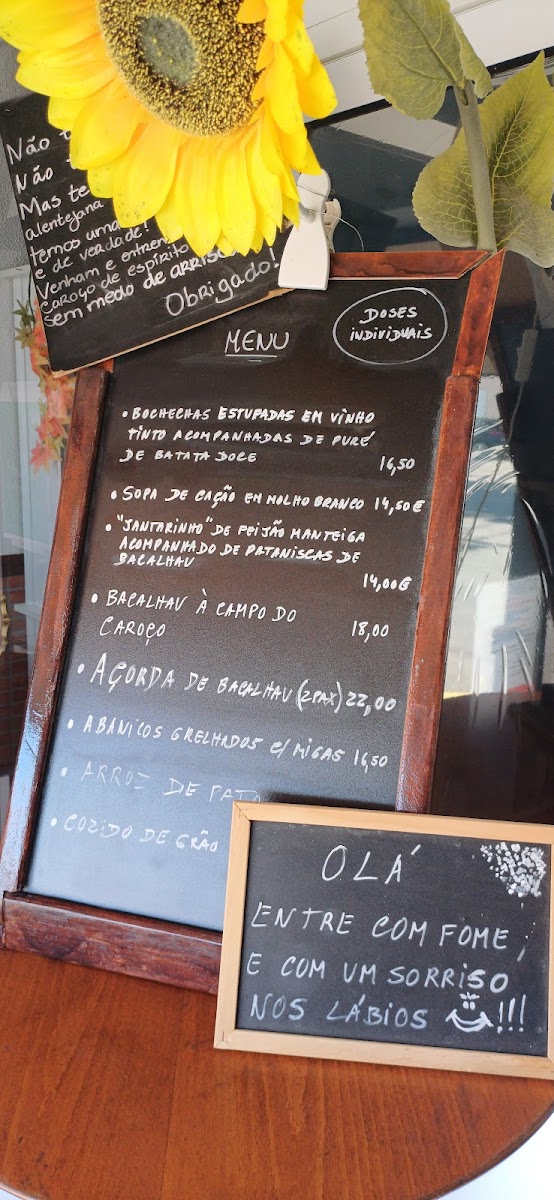 Não
Não
Mas te
alentejana
temos uma
e de verdade!
Venham e entrem
caroço de espírito
sem medo de arrisc
Obrigado!
MENU
DOSES
INDIVIDUAIS
• BOCHECHAS ESTUPADAS EM VINHO
TINTO ACOMPANHADAS DE PURÉ
DE BATATA DOCE 16,50
• SOPA DE CAÇÃO EM MOLHO BRANCO 14,50€
• "JANTARINHO" DE FEIJÃO MANTEIGA
ACOMPANHADO DE PATANISCAS DE
BACALHAU
14,00€
• BACALHAU À CAMPO DO
CAROÇO 18,00
• AÇORDA DE BACALHAU (2PAX) 22,00
• ABANICOS GRELHADOS C/ MIGAS 16,50
• ARROZ DE PATO
• COZIDO DE GRÃO
OLÁ
ENTRE COM FOME,
E COM UM SORRISO
NOS LÁBIOS !!!